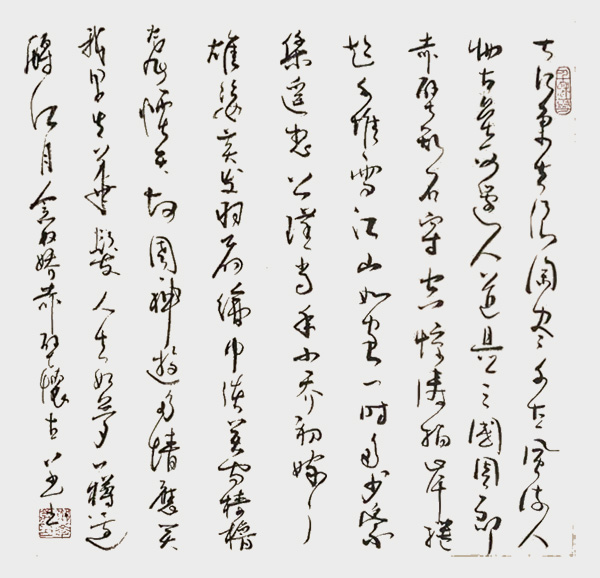 大江東去浪淘盡千古風流人
物故壘西邊人道是三國周郎
赤壁亂石穿空驚濤拍岸捲
起千堆雪江山如畫一時多少豪
傑遙想公瑾當年小喬初嫁了
雄姿英发羽扇綸巾談笑間檣櫓
灰飛煙滅故國神遊多情應笑
我早生華髮人生如夢一樽還
酹江月念奴嬌赤壁懷古